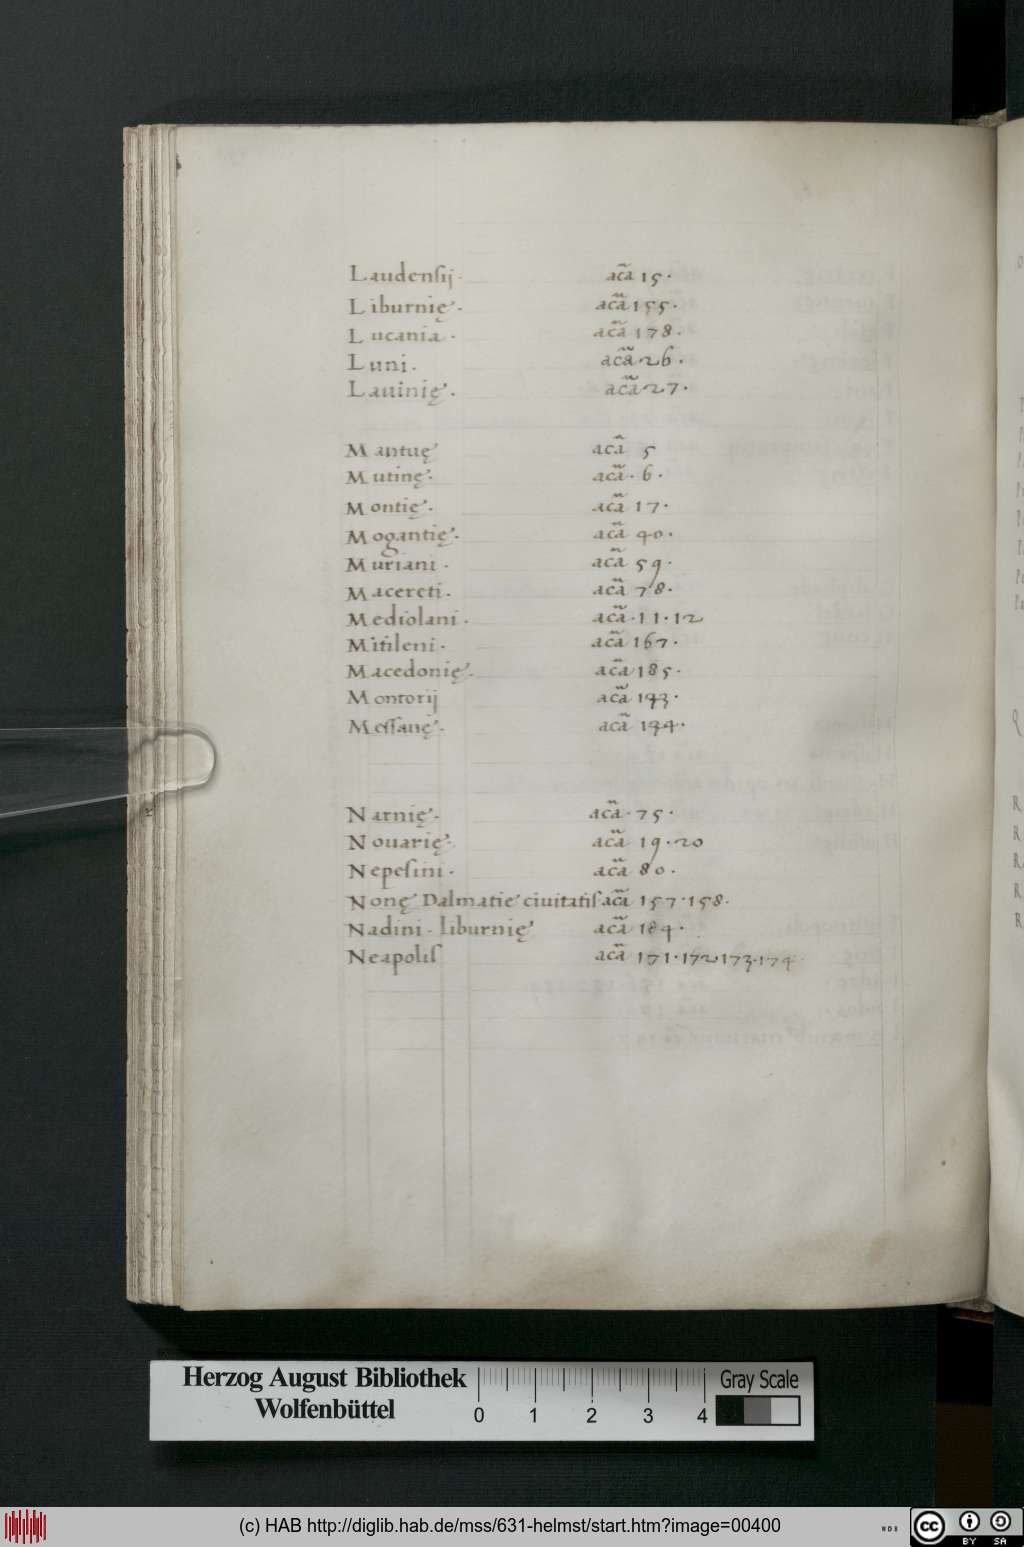 Laudensij· acã 15·
Liburnię· acã 155·
Lucania· acã 178·
Luni· acã 26·
Lauinię· acã 27·
Mantuę acã 5
Mutinę· acã· 6·
Montię· acã 17·
Mogantię· acã 40·
Muriani· acã 59·
Macereti· acã 78·
Mediolani· acã·11·12
Mitileni· acã 167·
Macedonię· acã 185·
Montorij acã 143·
Messanę· acã 134·
Narnię· acã·75·
Nouarię· acã 19·20
Nepesini· acã 80·
Nonę Dalmatie ciuitatis acã 157·158·
Nadini· liburnię acã 184·
Neapolis acã 171·172 173·174
Herzog August Bibliothek
Wolfenbüttel
Gray Scale
0 1 2 3 4
(c) HAB http://diglib.hab.de/mss/631-helmst/start.htm?image=00400
WDB
cc BY SA